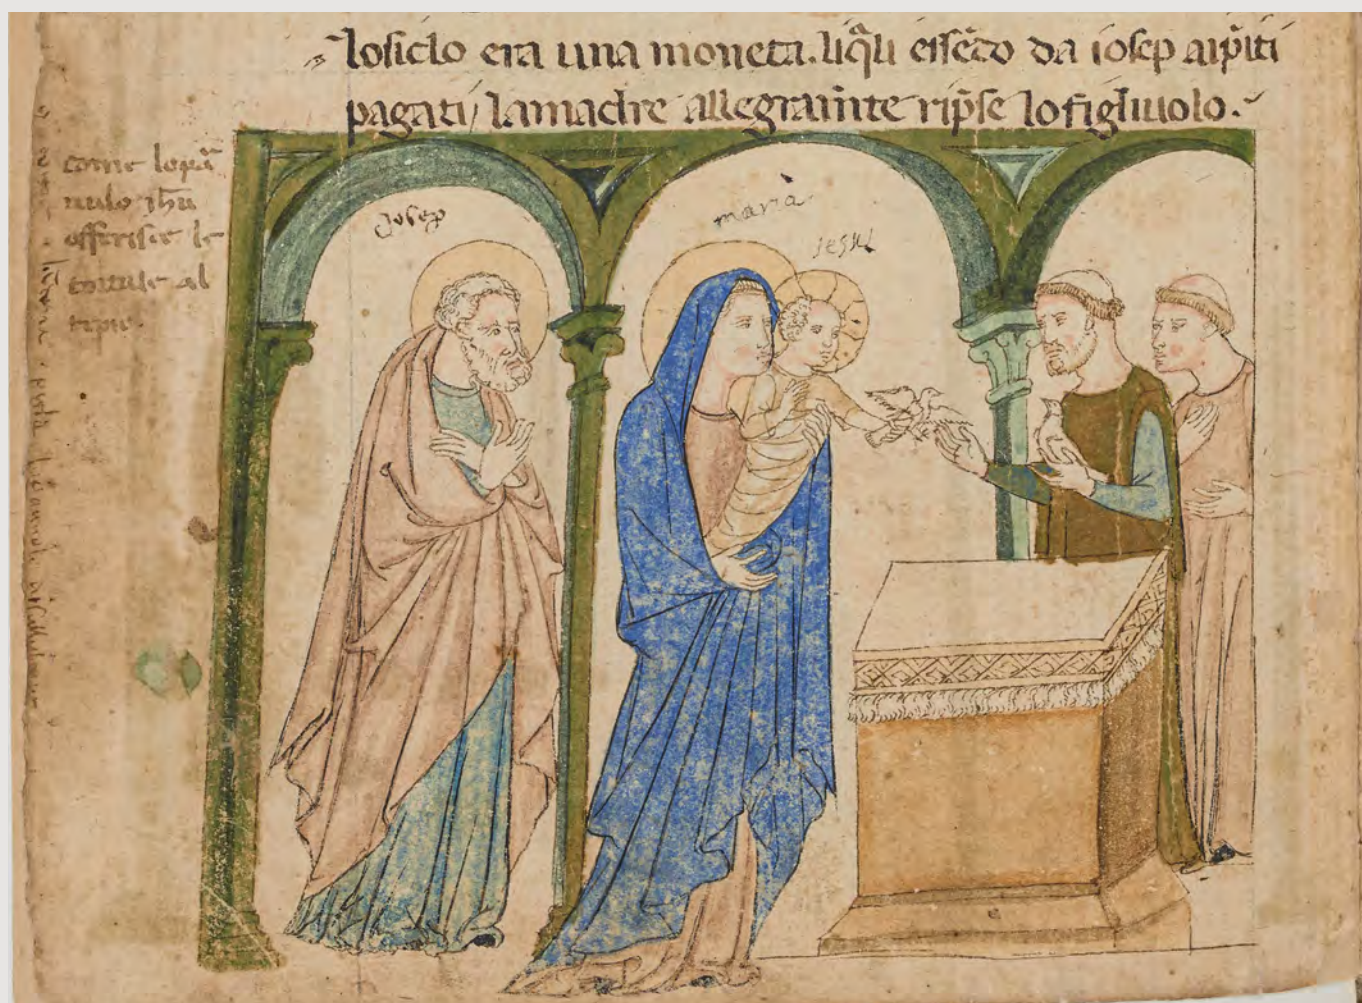 losiclo era una moneta. liq̄li eſſēdo da ioſep aip̄iti
pagati / lamadre allegram̄te rip̄ſe lofigliuolo.
come lopa
nulo ih̄u
offeriſce le
al
Josep
maria
iesu